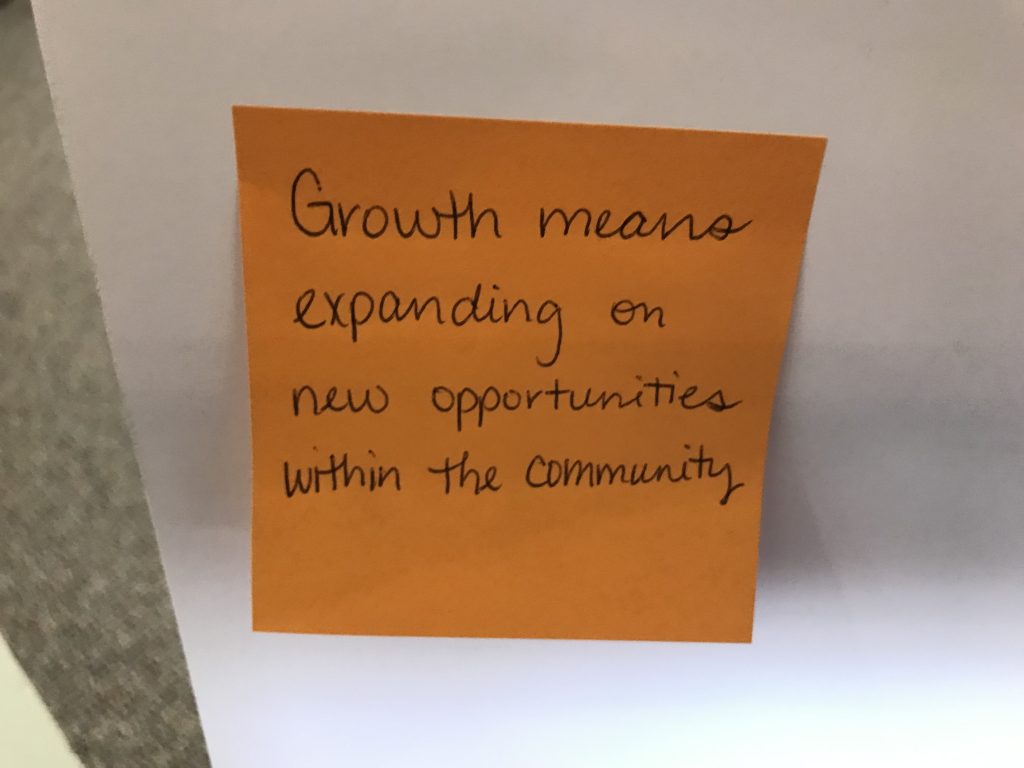 Growth means
expanding on
new opportunities
within the community